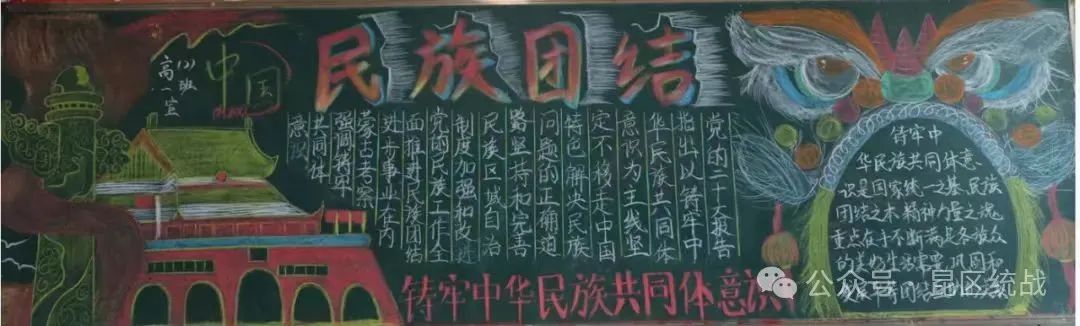 中国
高一(2)班
宣
民族团结
党的二十大报告
指出以铸牢中
华民族共同体
意识为主线坚
定不移走中国
特色解决民族
问题的正确道
路坚持和完善
民族区域自治
制度加强和改进
党的民族工作全
面推进民族团结
进步事业在内
蒙古考察
强调铸牢
共同体
意识
铸牢中华民族共同体意识
铸牢中
华民族共同体意
识是国家统一之基、民族
团结之本、精神力量之魂。
重点在于不断满足各族众
的美好生活需要,巩固和
团结
公众号·昆区统战